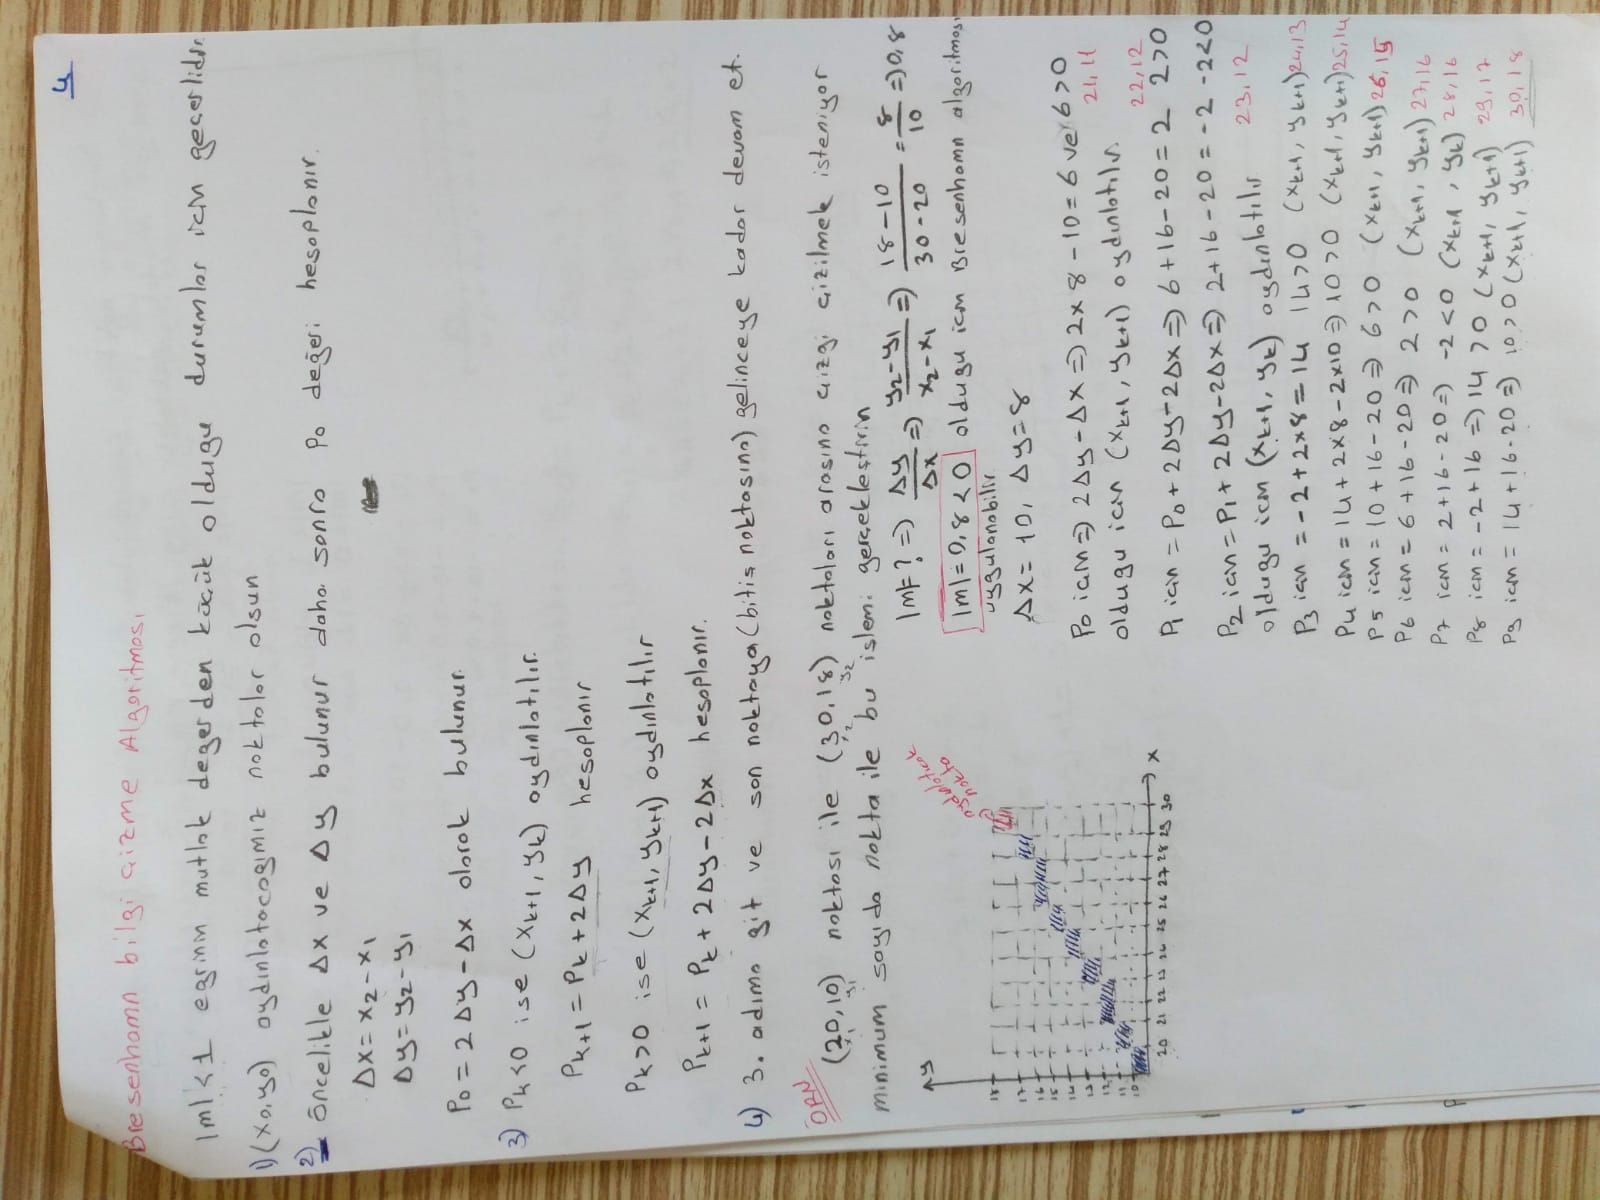 4
Bresenhamn bilgi çizme Algoritması
|m|<1 egrinin mutlak degerden küçük oldugu durumlar için geçerlidir.
1) (x0,y0) aydınlatacağımız noktalar olsun
2) öncelikle Δx ve Δy bulunur daha sonra P0 değeri hesaplanır.
Δx = x2-x1
Δy = y2-y1
P0 = 2Δy-Δx olarak bulunur.
3) Pk<0 ise (xk+1, yk) aydınlatılır.
Pk+1 = Pk+2Δy hesaplanır
Pk>0 ise (xk+1, yk+1) aydınlatılır
Pk+1 = Pk + 2Δy-2Δx hesaplanır.
4) 3. adıma git ve son noktaya (bitis noktasına) gelinceye kadar devam et.
ÖRN
(20,10) noktası ile (30,18) noktaları arasına çizgi çizilmek isteniyor
x1 y1 x2 y2
minimum sayıda nokta ile bu islemi gerçekleştirin
|m|=? => Δy/Δx => y2-y1/x2-x1 => 18-10/30-20 = 8/10 => 0,8
|m|=0,8<0 oldugu icın Bresenhamn algoritması
uygulanabilir
Δx = 10, Δy = 8
P0 için => 2Δy-Δx => 2x8-10 = 6 ve 6>0
oldugu için (xk+1, yk+1) aydınlatılır. 21,11
P1 için = P0+2Δy-2Δx => 6+16-20 = 2 2>0
22,12
P2 için = P1+2Δy-2Δx => 2+16-20 = -2 -2<0
oldugu icın (xk+1, yk) aydınlatılır 23,12
P3 için = -2+2x8 = 14 14>0 (xk+1, yk+1) 24,13
P4 için = 14+2x8-2x10 => 10>0 (xk+1, yk+1) 25,14
P5 için = 10+16-20 => 6>0 (xk+1, yk+1) 26,15
P6 için = 6+16-20 => 2>0 (xk+1, yk+1) 27,16
P7 için = 2+16-20 => -2<0 (xk+1, yk) 28,16
P8 için = -2+16 => 14>0 (xk+1, yk+1) 29,17
P9 için = 14+16-20 => 10>0 (xk+1, yk+1) 30,18
y
aydınlatılacak
nokta
18
17
16
15
14
13
12
11
10
20 21 22 23 24 25 26 27 28 29 30 x